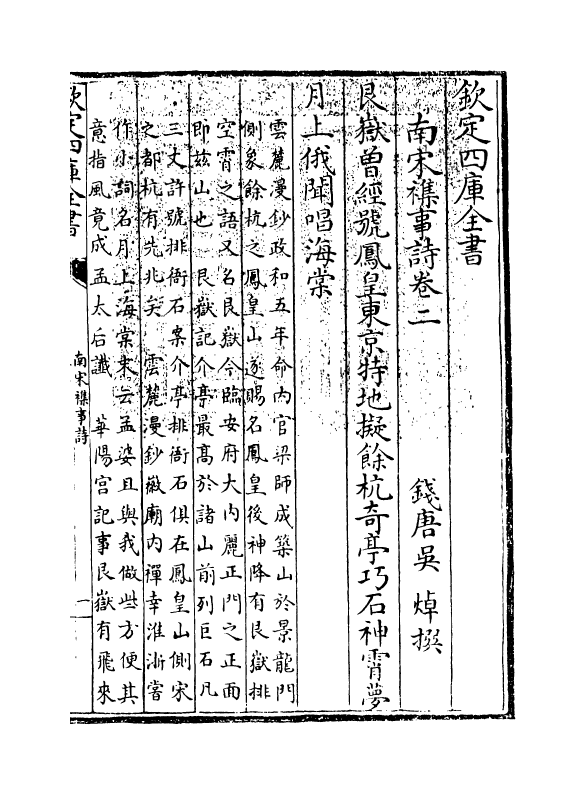 欽定四庫全書
南宋襍事詩卷二
錢唐吳焯撰
艮嶽曾經號鳳皇東京特地擬餘杭奇亭巧石神霄夢
月上俄聞唱海棠
雲麓漫鈔政和五年命內官梁師成築山於景龍門
側象餘杭之鳳皇山遂賜名鳳皇後神降有艮嶽排
空霄之語又名艮嶽今臨安府大內麗正門之正面
即兹山也 艮嶽記介亭最髙於諸山前列巨石凡
三丈許號排衙石案介亭排衙石俱在鳳皇山側宋
之都杭有先兆矣 雲麓漫鈔徽廟內禪幸淮浙嘗
作小詞名月上海棠末云孟婆且與我做些方便其
意指風竟成孟太后讖 華陽宫記事艮嶽有飛來
欽定四庫全書
南宋襍事詩
一